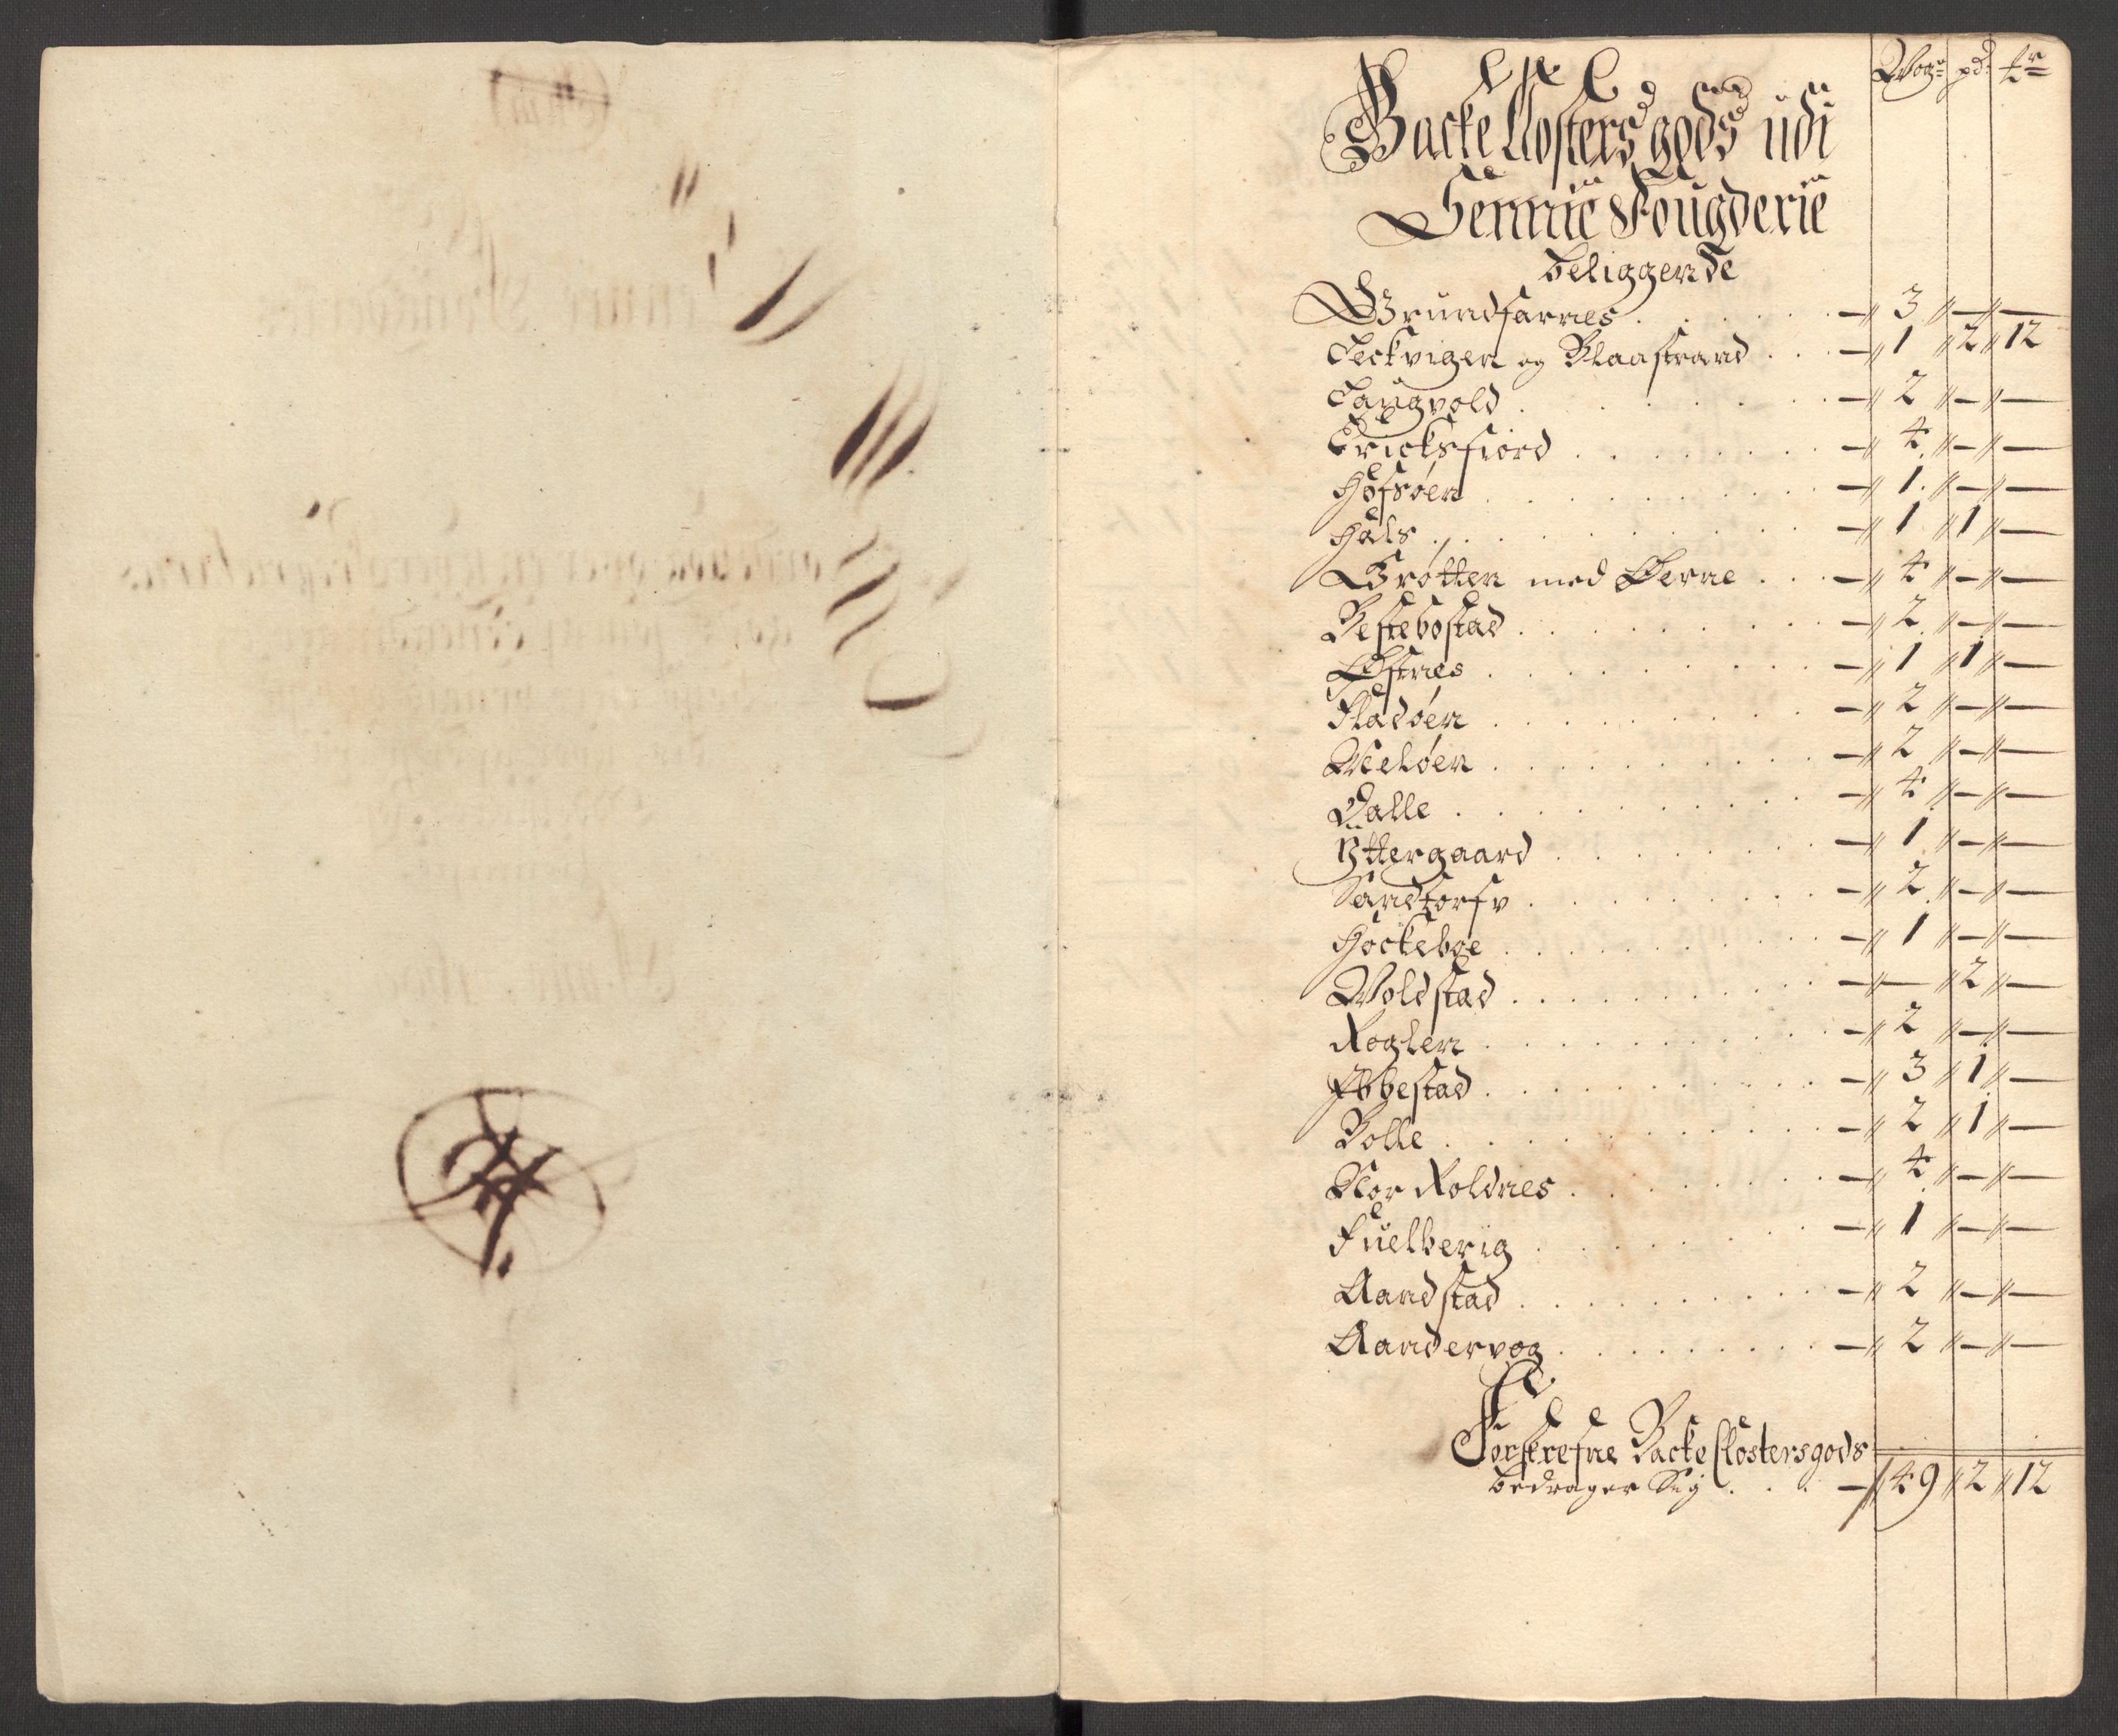 Wog pd: tr
Backe Closters gods udi
Sennie Fougderie
beliggende
Grundfarnes . . . . . — 3 — —
Leckvigen og Blaastrand . . . — 1 2 12
Laugvold . . . . . — 2 — —
Ericksfiord . . . . . — 4 — —
Hofsøen . . . . . — 1 — —
Hals . . . . . — 1 1 —
Grøtten med Øerne . . . — 4 — —
Bestebostad . . . . . — 2 — —
Østnes . . . . . — 1 1 —
Fladøen . . . . . — 2 — —
Meeløen . . . . . — 2 — —
Dalle . . . . . — 4 — —
Yttergaard . . . . . — 1 — —
Sandtorfv . . . . . — 2 — —
Hockeboe . . . . . — 1 — —
Woldstad . . . . . — — 2 —
Roglen . . . . . — 2 — —
Ebbestad . . . . . — 3 1 —
Bolle . . . . . — 2 1 —
Nor Roldnes . . . . . — 4 — —
Fuelberig . . . . . — 1 — —
Aandstad . . . . . — 2 — —
Aandervog . . . . . — 2 — —
Forskrefne Backe Clostersgods
bedrager Sig . . . — 49 2 12